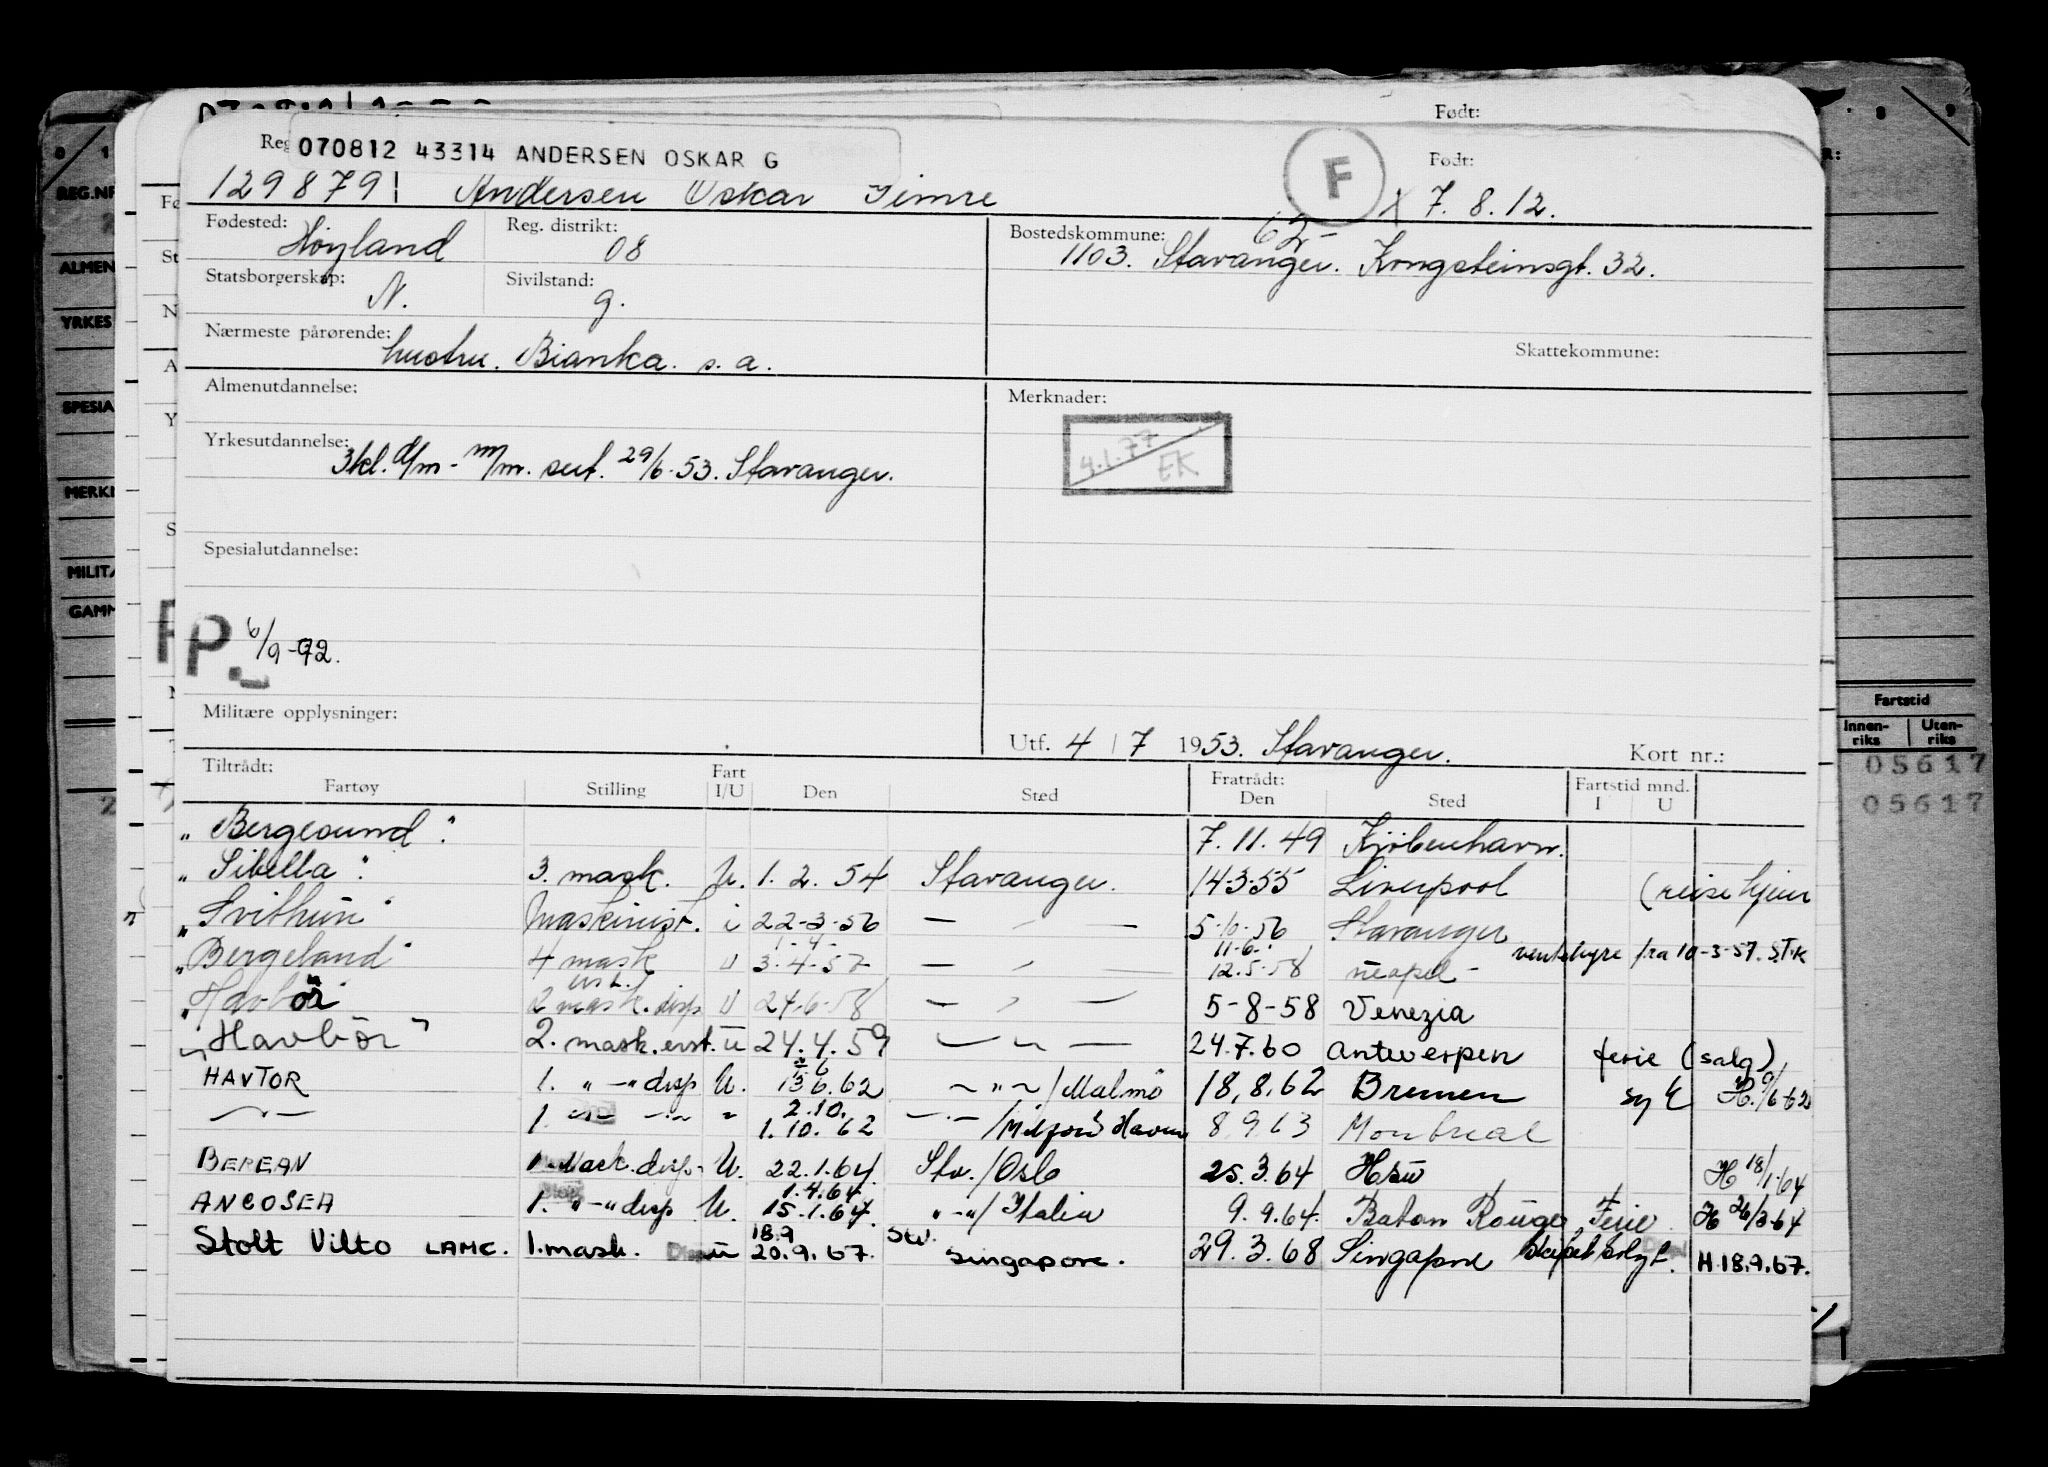 Født:
Reg 070812 43314 ANDERSEN OSKAR G
F
Født:
129879 Andersen Oskar X 7.8.12.
Fødested: Høyland Reg. distrikt: 08 Bostedskommune: 62
1103. Stavanger. Kongsteinsgt. 32.
Statsborgerskap: N. Sivilstand: g.
Nærmeste pårørende: hustru. Bianka. s. a.
Skattekommune:
Almenutdannelse: Merknader:
4.1.77 EK
Yrkesutdannelse: 3kl. d/m - m/m. sert. 29/6-53. Stavanger.
Spesialutdannelse:
P. 6/9-72.
Militære opplysninger: Utf. 4 / 7 1953. Stavanger. Kort nr.:
Tiltrådt: Fratrådt:
Fartøy Stilling Fart I/U Den Sted Den Sted Fartstid mnd. I U
"Bergesund". 7.11.49 Kjöbenhavn.
"Sibella". 3. mask. U. 1.2.54 Stavanger. 14-3-55 Liverpool (reise hjem
"Svithun" Maskinist. i 22-3-56 — " — 5-10-56 Stavanger
"Bergeland" 4 mask U 1-4- 3-4-57 — " — 11-6- 12.5.58 neapel - ventehyre fra 10-3-57. S.T.K
"Havbör" 2 mask. disp U 24-6-58 — " — 5-8-58 Venezia
"Havbör" 2. mask. erst. U 24.4.59 — " — 24.7.60 Antwerpen ferie (salg)
HAVTOR 1. " — " disp U. 13.6.62 — " — / Malmö 18.8.62 Bremen syk H. 9/6-62
— " — 1. — " — " 2.10. 1.10.62 — " — / Milford Haven 8.9.63 Montreal
BEREAN 1. Mask. disp. U. 22.1.64 Stv. / Oslo 25.3.64 H 18/1-64
ANCOSEA 1. " — " disp U. 1.4.64 15.1.67. " — " / Italia 9.9.64. Baton Rouge Ferie H 26/3-64
Stolt Vilto LAMC. 1. mask. U 18.9 20.9.67. Stv. Singapore. 29.3.68 Singapore H.18.9.67.
REG.NR
ALMEN
YRKES
SPESIA
MERKN
MILITÆ
GAMM
Fartstid
Innen-riks Uten-riks
05617
05617